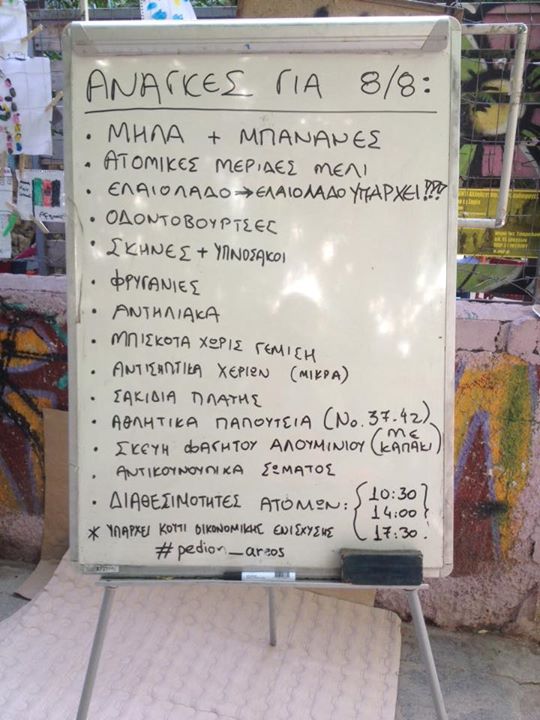 ΑΝΑΓΚΕΣ ΓΙΑ 8/8:
• ΜΗΛΑ + ΜΠΑΝΑΝΕΣ
• ΑΤΟΜΙΚΕΣ ΜΕΡΙΔΕΣ ΜΕΛΙ
• ΕΛΑΙΟΛΑΔΟ → ΕΛΑΙΟΛΑΔΟ ΥΠΑΡΧΕΙ!!!
• ΟΔΟΝΤΟΒΟΥΡΤΣΕΣ
• ΣΚΗΝΕΣ + ΥΠΝΟΣΑΚΟΙ
• ΦΡΥΓΑΝΙΕΣ
• ΑΝΤΗΛΙΑΚΑ
• ΜΠΙΣΚΟΤΑ ΧΩΡΙΣ ΓΕΜΙΣΗ
• ΑΝΤΙΣΗΠΤΙΚΑ ΧΕΡΙΩΝ (ΜΙΚΡΑ)
• ΣΑΚΙΔΙΑ ΠΛΑΤΗΣ
• ΑΘΛΗΤΙΚΑ ΠΑΠΟΥΤΣΙΑ (Νο. 37-42)
• ΣΚΕΥΗ ΦΑΓΗΤΟΥ ΑΛΟΥΜΙΝΙΟΥ (ΜΕ ΚΑΠΑΚΙ)
• ΑΝΤΙΚΟΥΝΟΥΠΙΚΑ ΣΩΜΑΤΟΣ
• ΔΙΑΘΕΣΙΜΟΤΗΤΕΣ ΑΤΟΜΩΝ: { 10:30
14:00
17:30 }
* ΥΠΑΡΧΕΙ ΚΟΥΤΙ ΟΙΚΟΝΟΜΙΚΗΣ ΕΝΙΣΧΥΣΗΣ
#pedion_areos